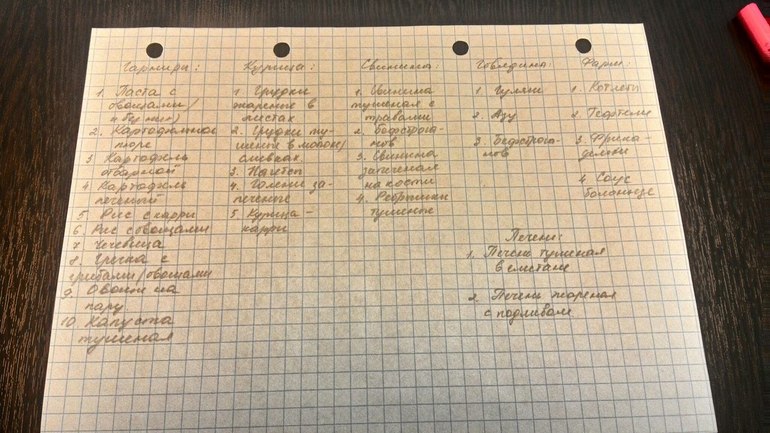 Гарниры:
1. Паста с
овощами/
2. Картофельное
пюре
3 Картофель
отварной
4 Картофель
печеный
5 Рис с карри
6 Рис с овощами
7 Чечевица
8. Гречка с
грибами/овощами
9. Овощи на
пару
10. Капуста
тушеная
Курица:
1. Грудки
жареные в
листах
2. Грудки ту-
шеные в молоке/
сливках
3. Наггетсы
4. Голени за-
печеные
5 Курица-
карри
Свинина:
1. Свинина
тушеная с
травами
2. Бефстрога-
нов
3. Свинина
запеченая
на кости
4. Ребрышки
тушеные
Говядина:
1. Гуляш
2. Азу
3. Бефстрога-
нов
Фарш:
1. Котлеты
2. Тефтели
3. Фрика-
дельки
4. Соус
болоньезе
Печень:
1. Печень тушеная
в сметане
2. Печень жареная
с подливом